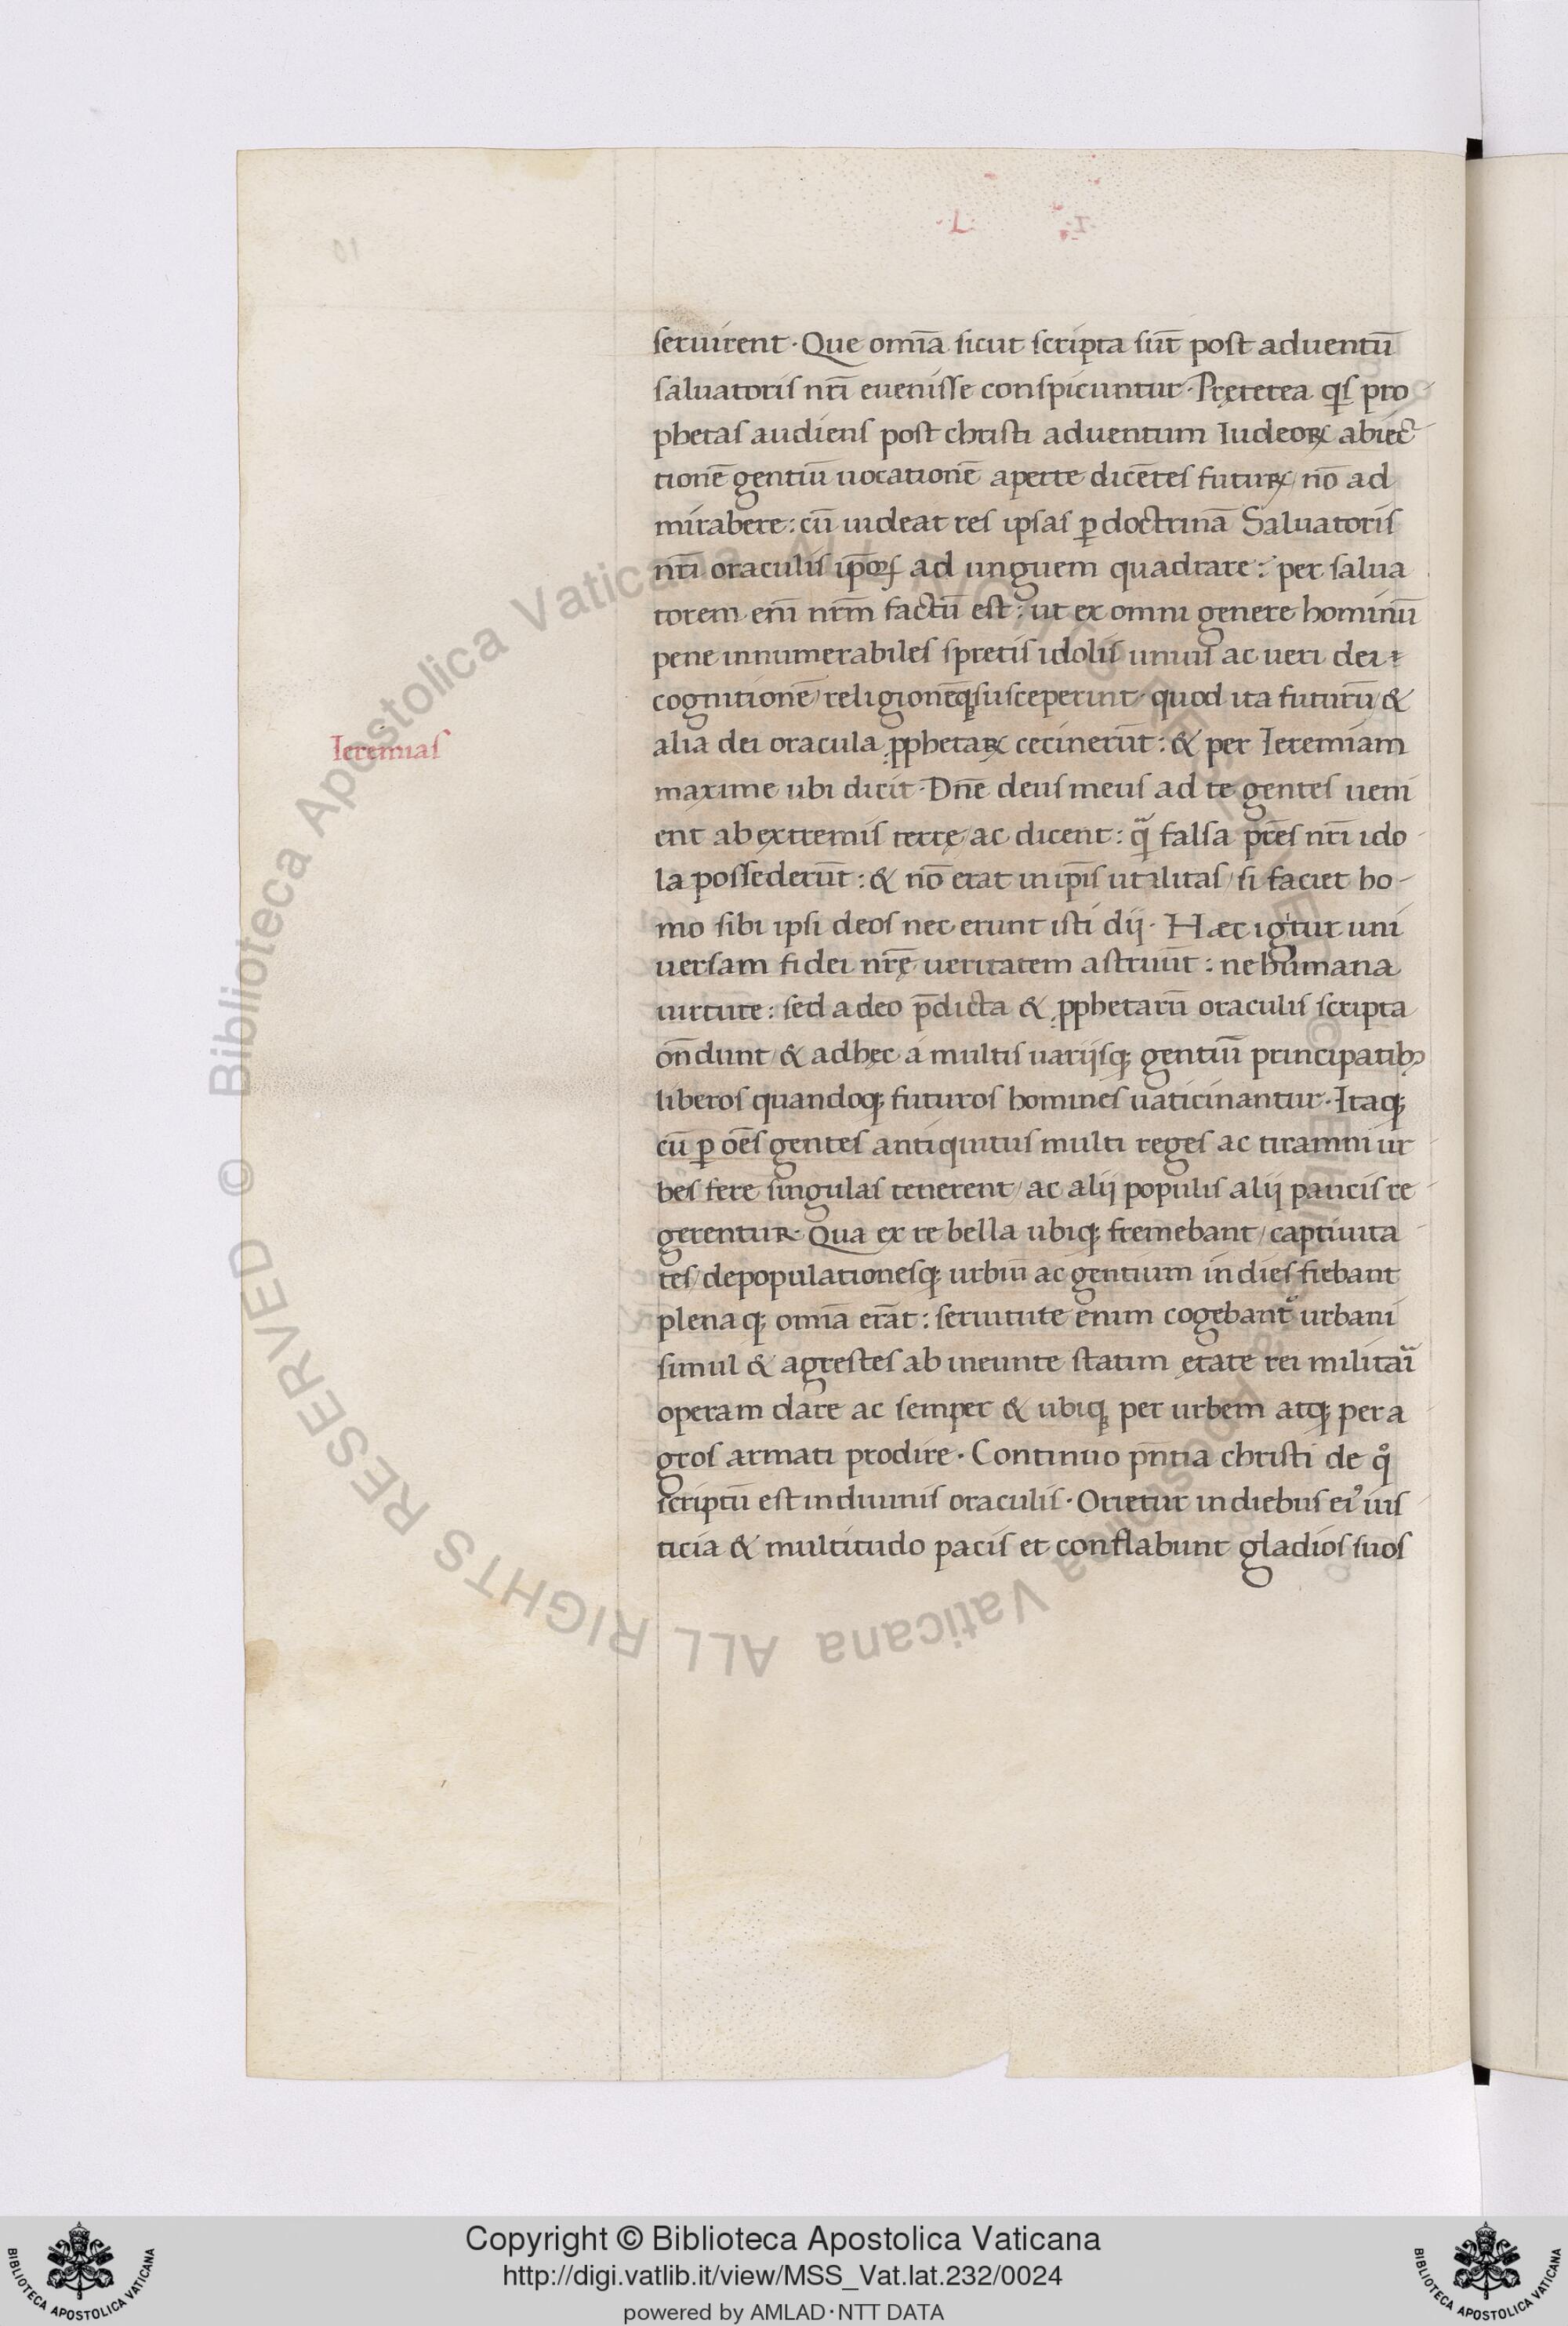 seruirent · Que omīa sicut scripta sūt post aduentū
saluatoris nr̄i euenisse conspicuntur · Pręterea q̄s pro
phetas audiens post christi aduentum Iudeoꝝ abiec
tionē gentiū uocationē aperte dicētes futuꝝ / nō ad
mirabere : cū uideat res ipsas ꝑ doctrinā Saluatoris
nr̄i oraculis ip̄oꝝ ad unguem quadrare : per salua
torem eni̅ nrm̄ factū est : ut ex omni genere hominū
pene innumerabiles spretis idolis unius ac ueri dei
cognitionē / religionēqꝫ susceperint · quod ita futurū / &
alia dei oracula ꝓphetaꝝ cecinerūt : & per Ieremiam
Ieremias
maxime ubi dicit · Dn̄e deus meus ad te gentes ueni
ent ab extremis terrę / ac dicent : qᷓ falsa pr̄es nr̄i ido
la possederūt : & nō erat in ip̄is utilitas / si faciet ho-
mo sibi ipsi deos nec erunt isti dij · Hæc igitur uni
uersam fidei nr̄ę ueritatem astruūt : ne humana
uirtute : sed a deo p̄dicta & ꝓphetarū oraculis scripta
on̄dunt / & adhęc a multis uarijsqꝫ gentiū principatibꝫ
liberos quandoqꝫ futuros homines uaticinantur · Itaqꝫ
cū ꝑ oēs gentes antiquitus multi reges ac tiramni ur
bes fere singulas tenerent / ac alij populis alij paucis re
gerentur · Qua ex re bella ubiqꝫ fremebant / captiuita
tes / depopulationesqꝫ urbiū ac gentium in dies fiebant
plenaqꝫ omīa erāt : seruitute enim cogebant᷑ urbani
simul & agrestes ab ineunte statim ętate rei militaᷓi
operam dare ac semper & ubiqꝫ per urbem atqꝫ per a
gros armati prodire · Continuo pn̄tia christi de qͦ
scriptū est in diuinis oraculis · Orietur in diebus eiꝰ ius
ticia & multitudo pacis et conflabunt gladios suos
© Biblioteca Apostolica Vaticana ALL RIGHTS RESERVED
Copyright © Biblioteca Apostolica Vaticana
http://digi.vatlib.it/view/MSS_Vat.lat.232/0024
powered by AMLAD·NTT DATA
BIBLIOTECA APOSTOLICA VATICANA
BIBLIOTECA APOSTOLICA VATICANA